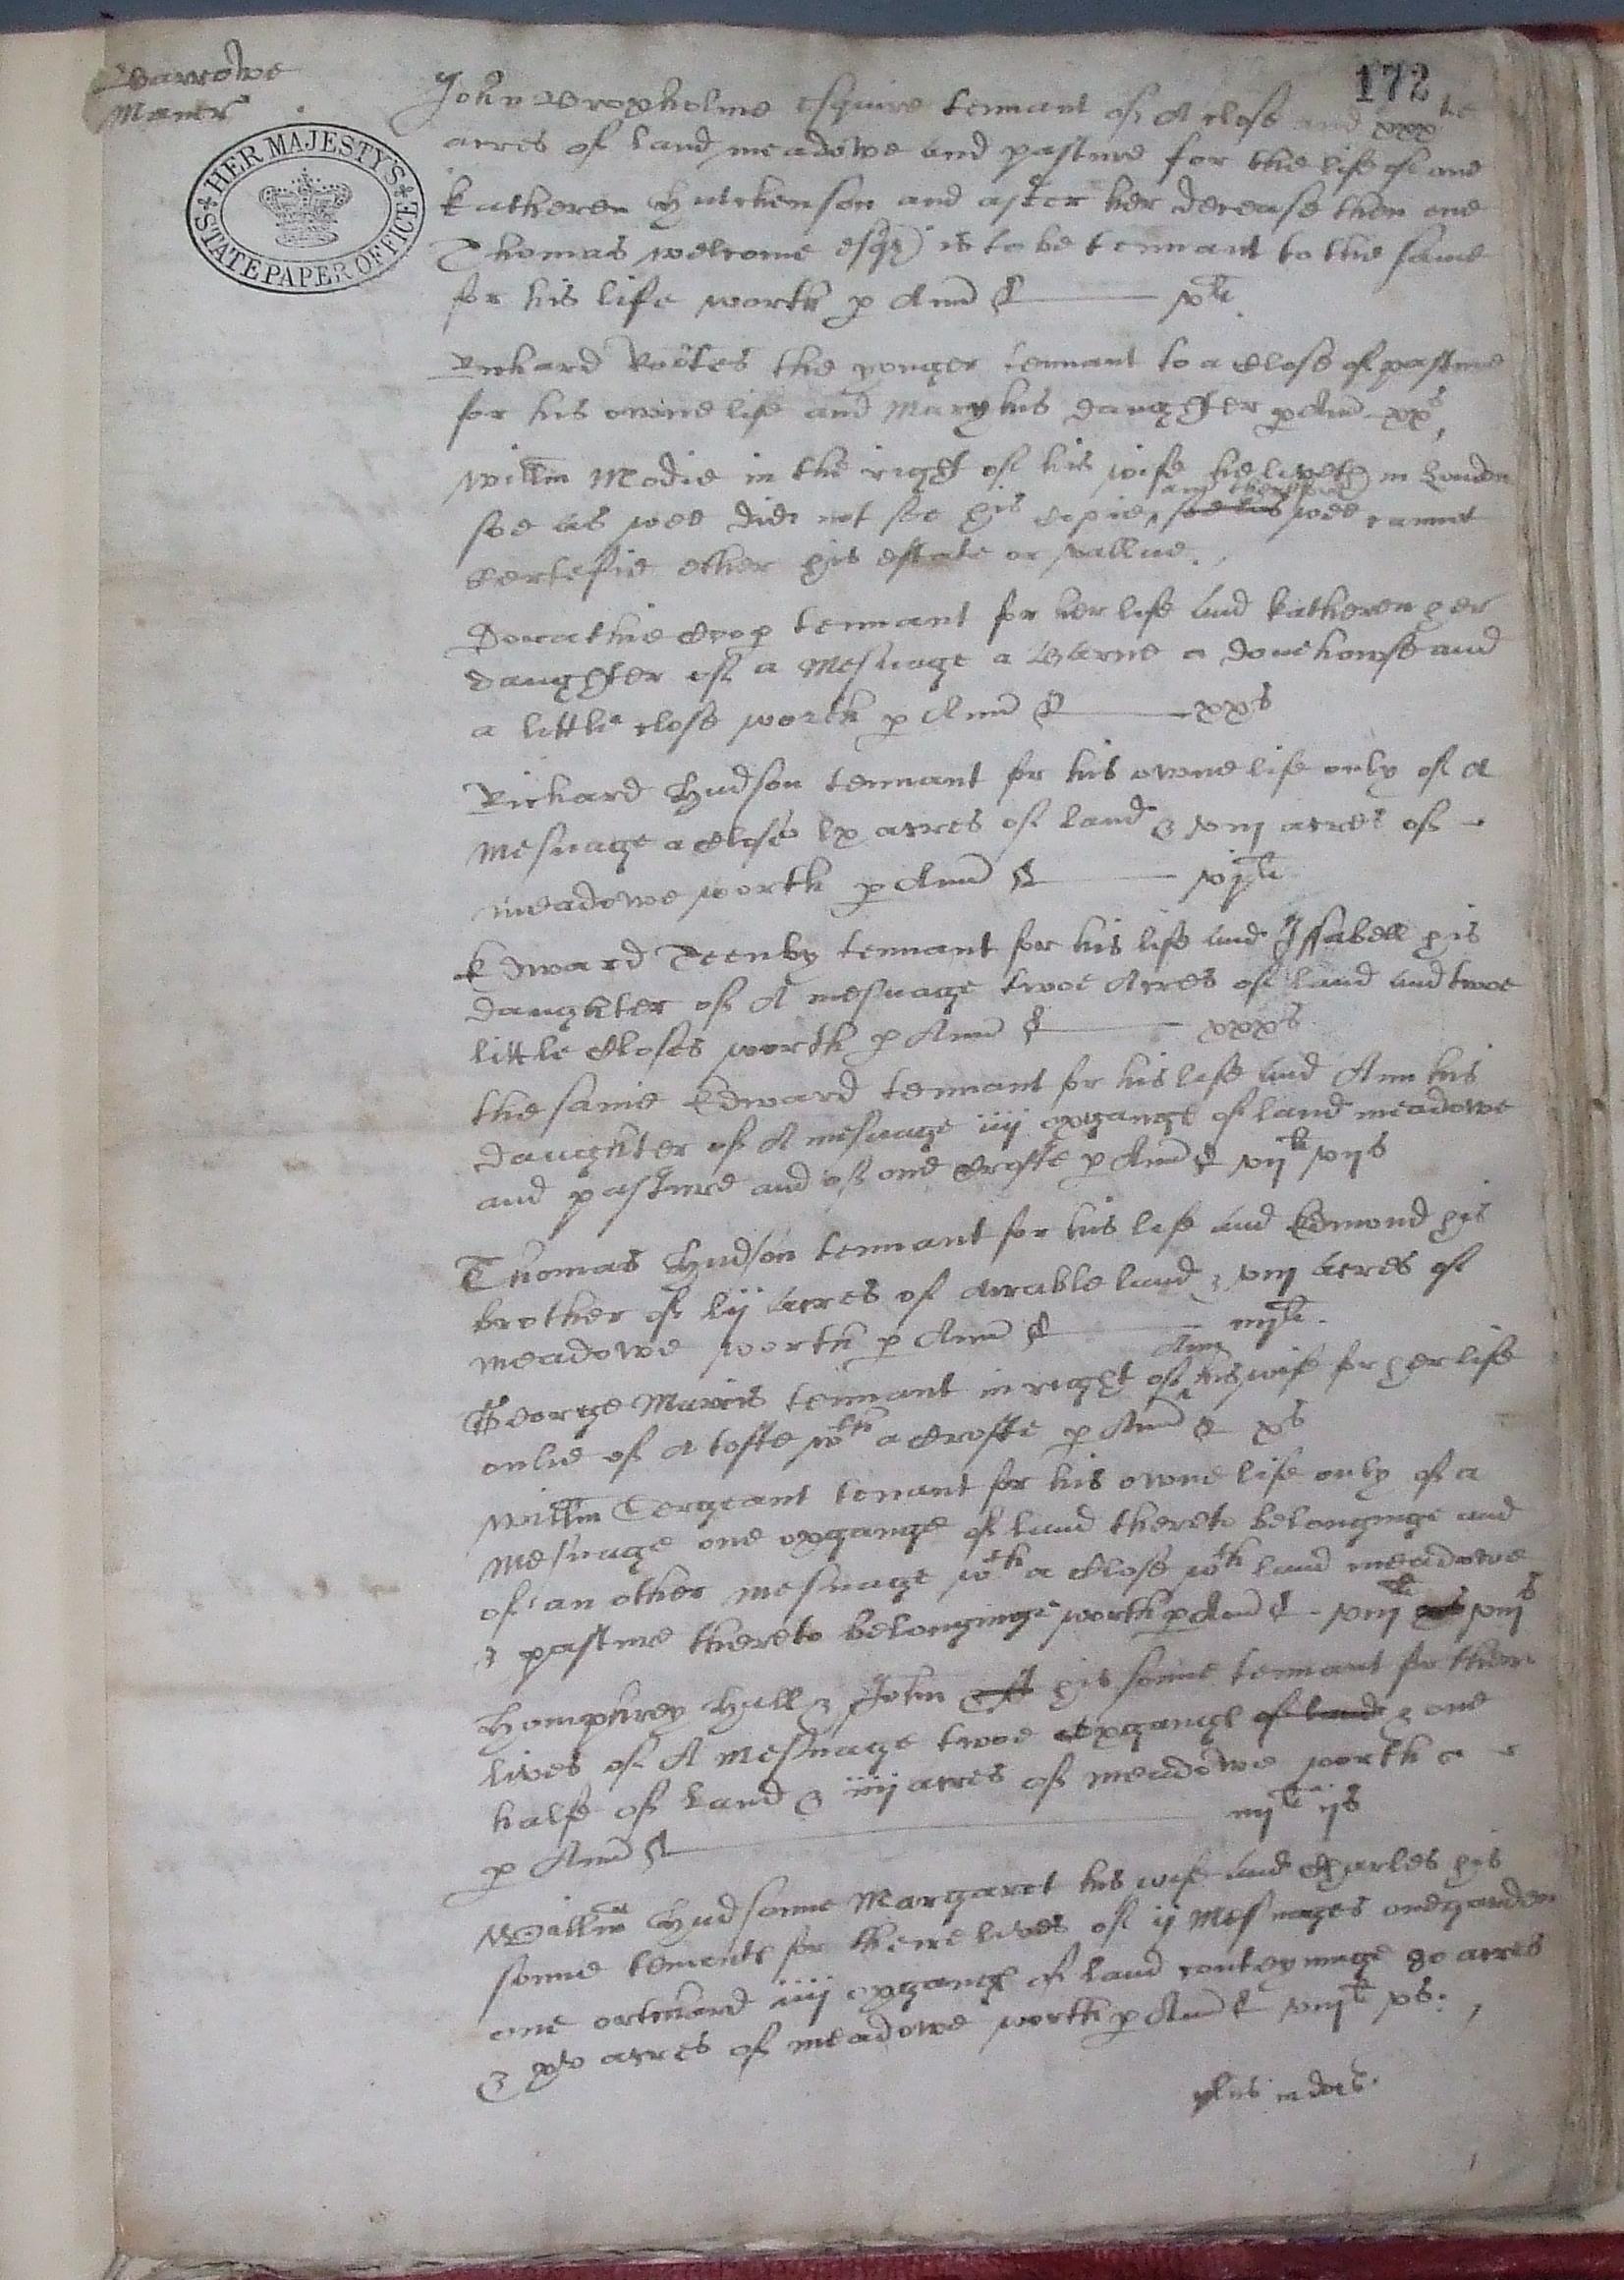 172
Barrowe
Maner
HER MAJESTY'S
STATE PAPER OFFICE
John Broxholme esquire tennant of A close and xxxtie
acres of land meadowe and pasture for the life of one
Katheren Hutchenson and after her decease then one
Thomas Welcome esqr is to be tennant to the same
for his life worth p Annu &——— xli.
Richard the yonger tennant to a Close of pasture
for his owne life and Mary his daughter p Annu xxs.
Willm Modie in the right of his wife he liveth in London
soe as wee did not see his Copie, and therefore soe as wee cannot
Certefie ether his estate or vallue.
Dorathie Crop tennant for her life and Katheren her
daughter of a Mesuage a Barne a dovehowse and
a little close worth p Annu &——— xxs
Richard Hudson tennant for his owne life only of A
Mesuage a Close lx acres of land & viij acres of
meadowe worth p Annu &——— vjli
Edward Teenby tennant for his life and Issabell his
daughter of A mesuage twoe Acres of land and twoe
little Closes worth p Annu &——— xxxs
the same Edward tennant for his life and Ann his
daughter of A mesuage iiij oxgange of land meadowe
and pasture and of one Crofte p Annu & vijli vijs
Thomas Hudson tennant for his life and Edmond his
brother of lij acres of Arrable land & viij acres of
meadowe worth p Annu &——— iiijli.
George Mavis tennant in right of Ann his wife for her life
onlie of A tofte wth a Crofte p Annu & xs
Willm Sergeant tenant for his owne life only of a
Mesuage one oxgange of land thereto belonginge and
of an other mesuage wth a Close wth land meadowe
& pasture thereto belonginge worth p Annu & viijli viijs
Homphrey Hall & John his sonne tennant for there
lives of A Mesuage twoe Oxgange of land & one
halfe of Land & iiij acres of meadowe worth
p Annu &——— iiijli ijs
Willm Hudsonne Margaret his wife and Charles his
sonne tenents for there lives of ij Mesuages one garden
one orchard iiij oxgange of land conteyninge 80 acres
& xv acres of meadowe worth p Annu & viijli xs.
plus in dors.